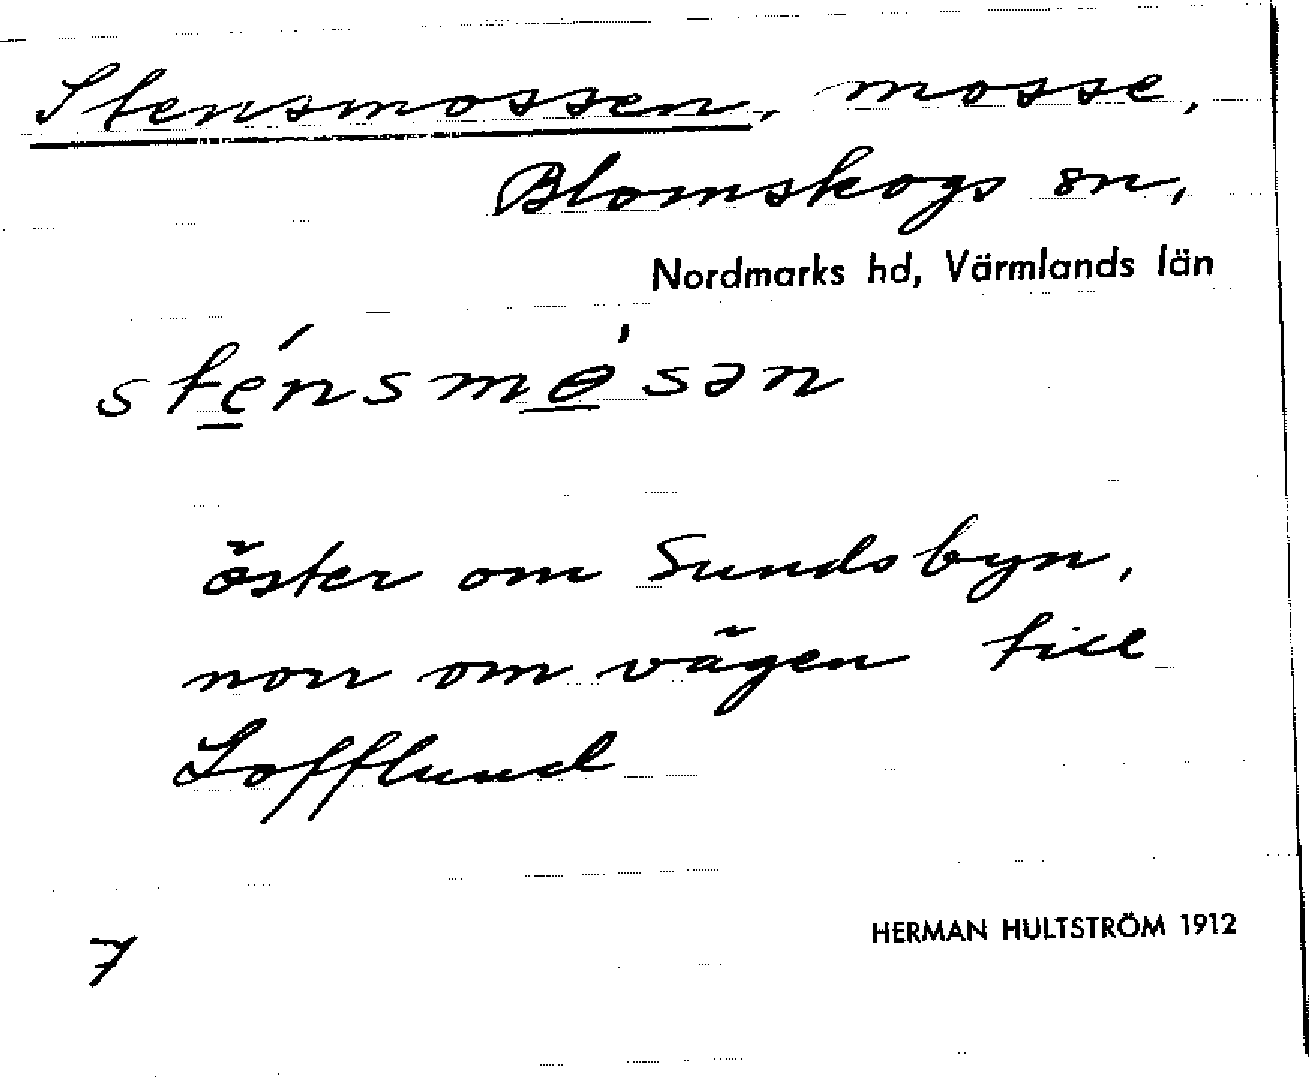 Stensmossen, mosse,
Blomskogs sn,
Nordmarks hd, Värmlands län
sténsmɵ́sən
öster om Sundsbyn,
norr om vägen till
Lofflund
HERMAN HULTSTRÖM 1912
7